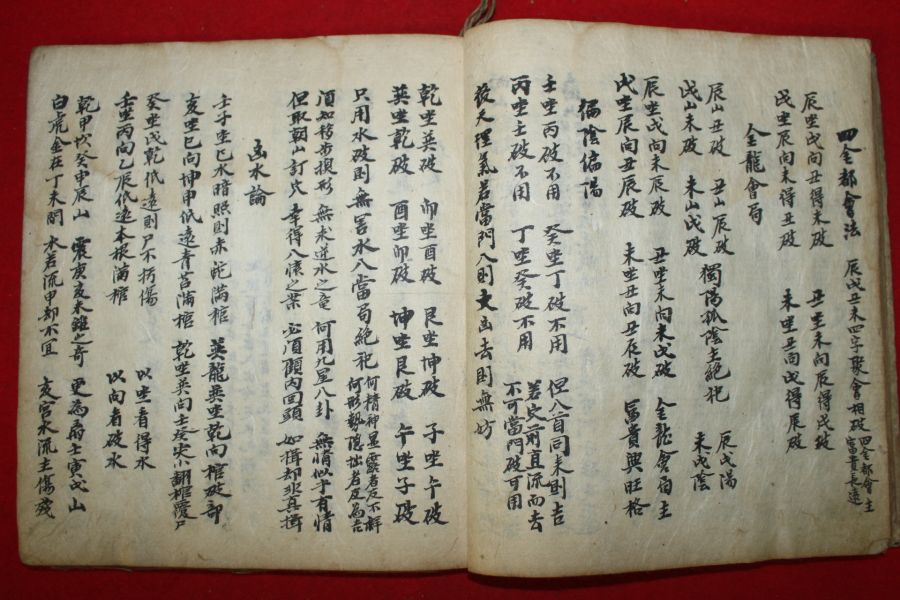 四金都會法 辰戌丑未四字聚會相破 四金都會主富貴長遠
辰坐戌向丑得未破 丑坐未向辰得戌破
戌坐辰向未得丑破 未坐丑向戌得辰破
金龍會局
辰山丑破 丑山辰破 獨陽孤陰主絕祀 辰戌陽
戌山未破 未山戌破 未戌陰
辰坐戌向未辰破 丑坐未向未戌破 金龍會局主
戌坐辰向丑辰破 未坐丑向丑辰破 富貴興旺格
偏陰偏陽
壬坐丙破不用 癸坐丁破不用 但八首同未則吉
丙坐壬破不用 丁坐癸破不用 若安前直流而去 不可當門破可用
天理氣若當門入則大凶去則無妨
乾坐巽破 卯坐酉破 艮坐坤破 子坐午破
巽坐乾破 酉坐卯破 坤坐艮破 午坐子破
只用水破則無害水入當局絕祀 何精神呈露者反不解 何形勢隱拙者反為吉
須知移步換形 無求逆水之竜 何用九星八卦 無情似乎有情
但取朝山訂穴 幸得入懷之案 必須顧內回頭 如揖却非真揖
凶水論
壬子坐巳水暗照則赤蛇滿棺 巽龍巽坐乾向棺破部
亥坐巳向坤申低遠青苔滿棺 乾坐巽向壬癸尖小翻棺覆尸
癸坐戌乾低遠則尸不朽傷 以坐者得水
壬坐丙向乙辰低遠木根滿棺 以向者破水
乾甲坎癸申辰山 震庚亥未雖云奇 更為爲壬寅戌山
白虎金在丁未間 水若流甲却不宜 亥宮水流主傷殘